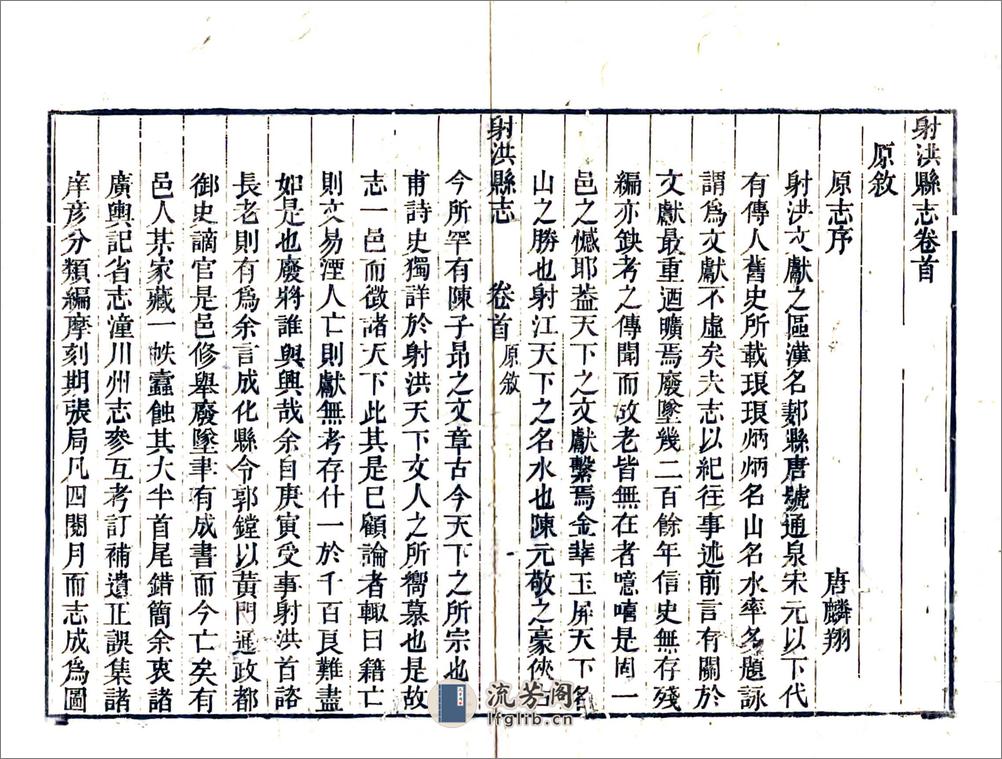 射洪縣志卷首
原敘
原志序 唐麟翔
射洪文獻之區漢名郪縣唐號通泉宋元以下代
有傳人舊史所載琅琅炳炳名山名水率多題詠
謂爲文獻不虛矣夫志以紀往事述前言有關於
文獻最重迺曠焉廢墜幾二百餘年信史無存殘
編亦鈌考之傳聞而故老皆無在者噫嘻是固一
邑之憾耶葢天下之文獻繫焉金華玉屏天下名
山之勝也射江天下之名水也陳元敬之豪俠古
射洪縣志 卷首 原敘
今所罕有陳子昂之文章古今天下之所宗也
甫詩史獨詳於射洪天下文人之所嚮慕也是故
志一邑而徵諸天下此其是巳顧論者輒曰籍亡
則文易湮人亡則獻無考存什一於千百艮難盡
如是也廢將誰與興哉余自庚寅受事射洪首諮
長老則有爲余言成化縣令郭鏜以黃門通政都
御史謫官是邑修舉廢墜聿有成書而今亡矣有
邑人某家藏一帙蠹蝕其大半首尾錯簡余裒諸
廣輿記省志潼川州志參互考訂補遺正誤集諸
庠彦分類編摩刻期張局凡四閱月而志成爲圖
流芳阁
lfglib.cn